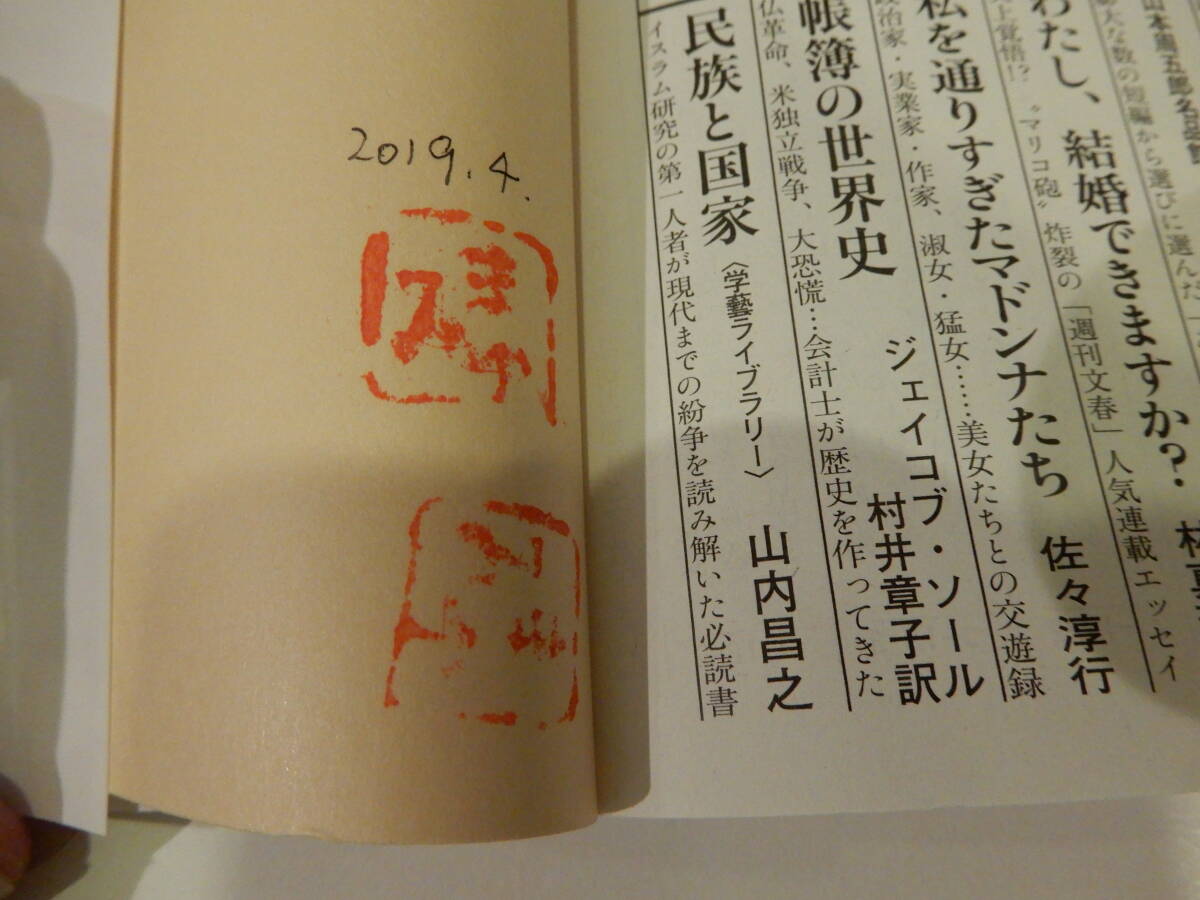 2019.4.
山本周五郎名品館
大な数の短編から選びに選んだ
わたし、結婚できますか?
上覚悟!? “マリコ砲”炸裂の「週刊文春」人気連載エッセイ
私を通りすぎたマドンナたち 佐々淳行
政治家・実業家・作家、淑女・猛女……美女たちとの交遊録
帳簿の世界史 ジェイコブ・ソール
村井章子訳
仏革命、米独立戦争、大恐慌…会計士が歴史を作ってきた
民族と国家〈学藝ライブラリー〉 山内昌之
イスラム研究の第一人者が現代までの紛争を読み解いた必読書